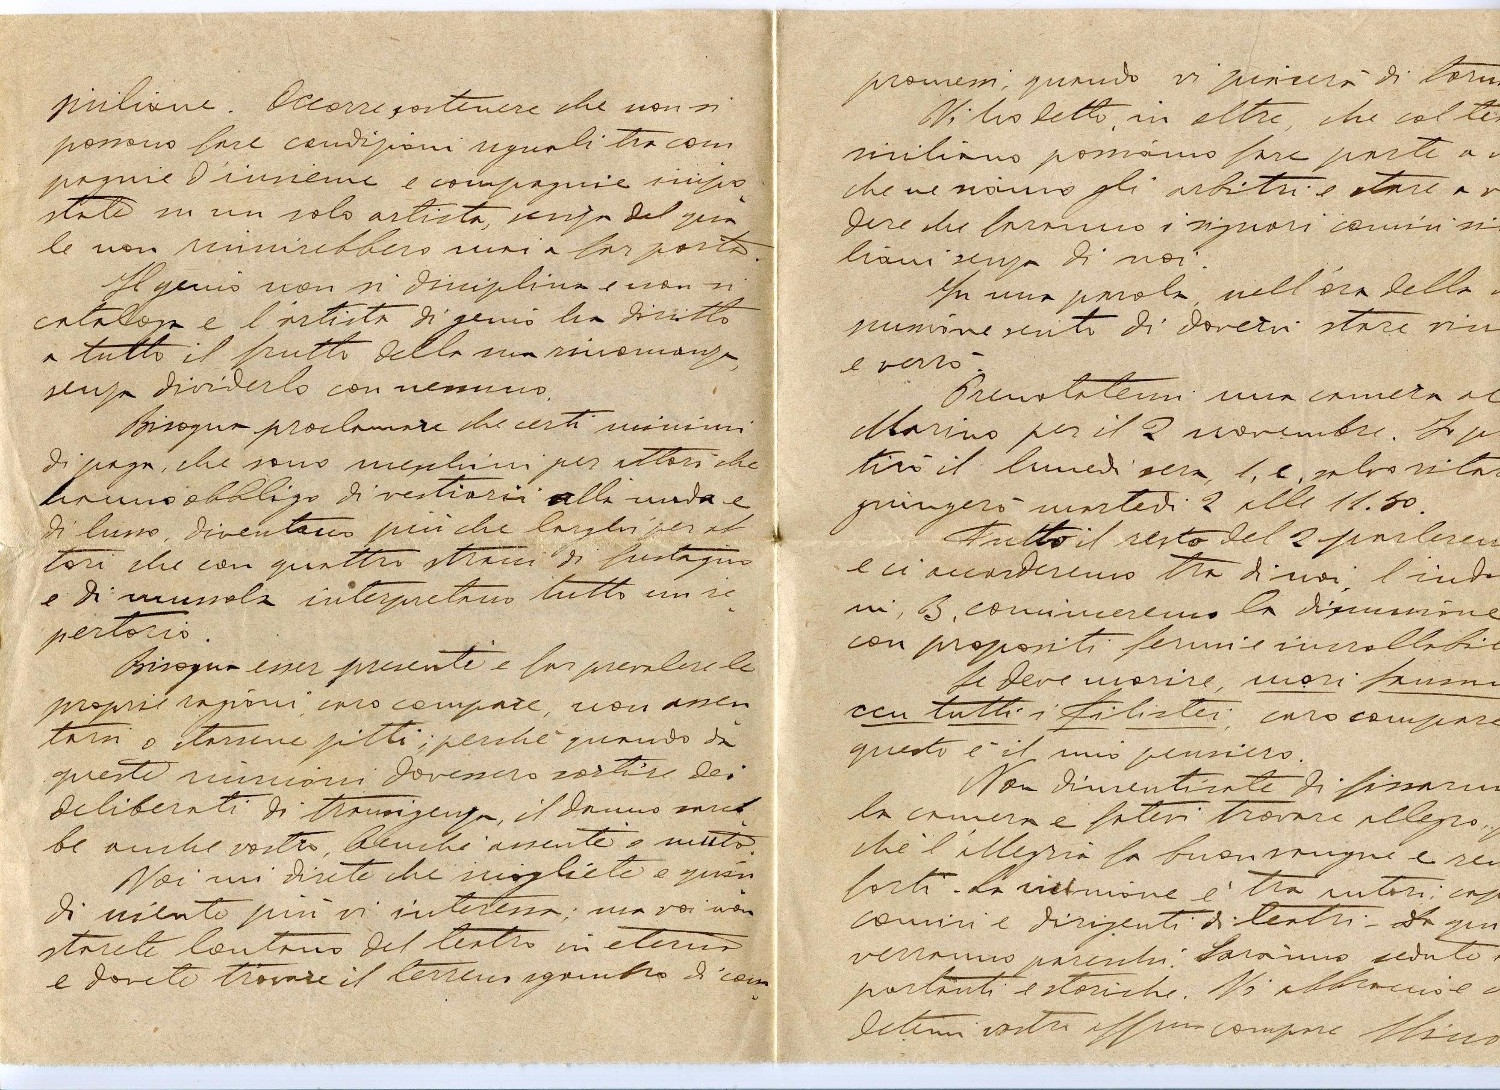 siciliane. Occorre sostenere che non si
possono fare condizioni uguali tra com
pagnie d'insieme e compagnie impo
state su un solo artista, senza del qua
le non riuscirebbero mai a far
Il genio non si disciplina e non si
cataloga e l'artista di genio ha diritto
a tutto il frutto della sua rinomanza,
senza dividerlo con nessuno.
Bisogna proclamare che certi minimi
di paga, che sono meschini per attori che
hanno obbligo di vestiarii alla moda e
di lusso, diventano più che larghi per at
tori che con quattro stracci di fustagno
e di mussola interpretano tutto un re-
pertorio.
Bisogna esser presenti e far prevalere le
proprie ragioni, caro compare, non assen
tarsi o starsene zitti; perchè quando da
queste riunioni dovessero sortire dei
deliberati di transigenza, il danno sareb
be anche vostro, benchè assente o muto.
Voi mi direte che sciogliete e quin
di niente più vi interessa; ma voi non
starete lontano del teatro in eterno
e dovete trovare il terreno sgombro di com
promessi, quando vi piacerà di
Vi ho detto, in oltre, che col
siciliano possiamo fare parte a
che ne siamo gli arbitri e stare a
dere che faranno i signori comici
liani senza di noi.
In una parola, nell'ora della
sento di dovervi stare
e verrò.
Prenotatemi una camera al
Marino per il 2 novembre. Io
tirò il lunedì sera, 1, e, salvo
giungerò martedì 2 alle 11.50.
Tutto il resto del 2
e ci accorderemo tra di noi, l'indo
ni, 3, cominceremo la discussione
con propositi fermi e incrollabili
Se deve morire, mori
ccu tutti i filistei, caro compare
questo è il mio pensiero.
Non dimenticate di
la camera e fatevi trovare allegro,
chè l'allegria fa buon sangue e
forti. La riunione è tra autori, capo
comici e dirigenti di teatri.
verranno parecchi. Saranno sedute
portanti e storiche. Vi abbraccio e
detemi vostro aff.mo compare